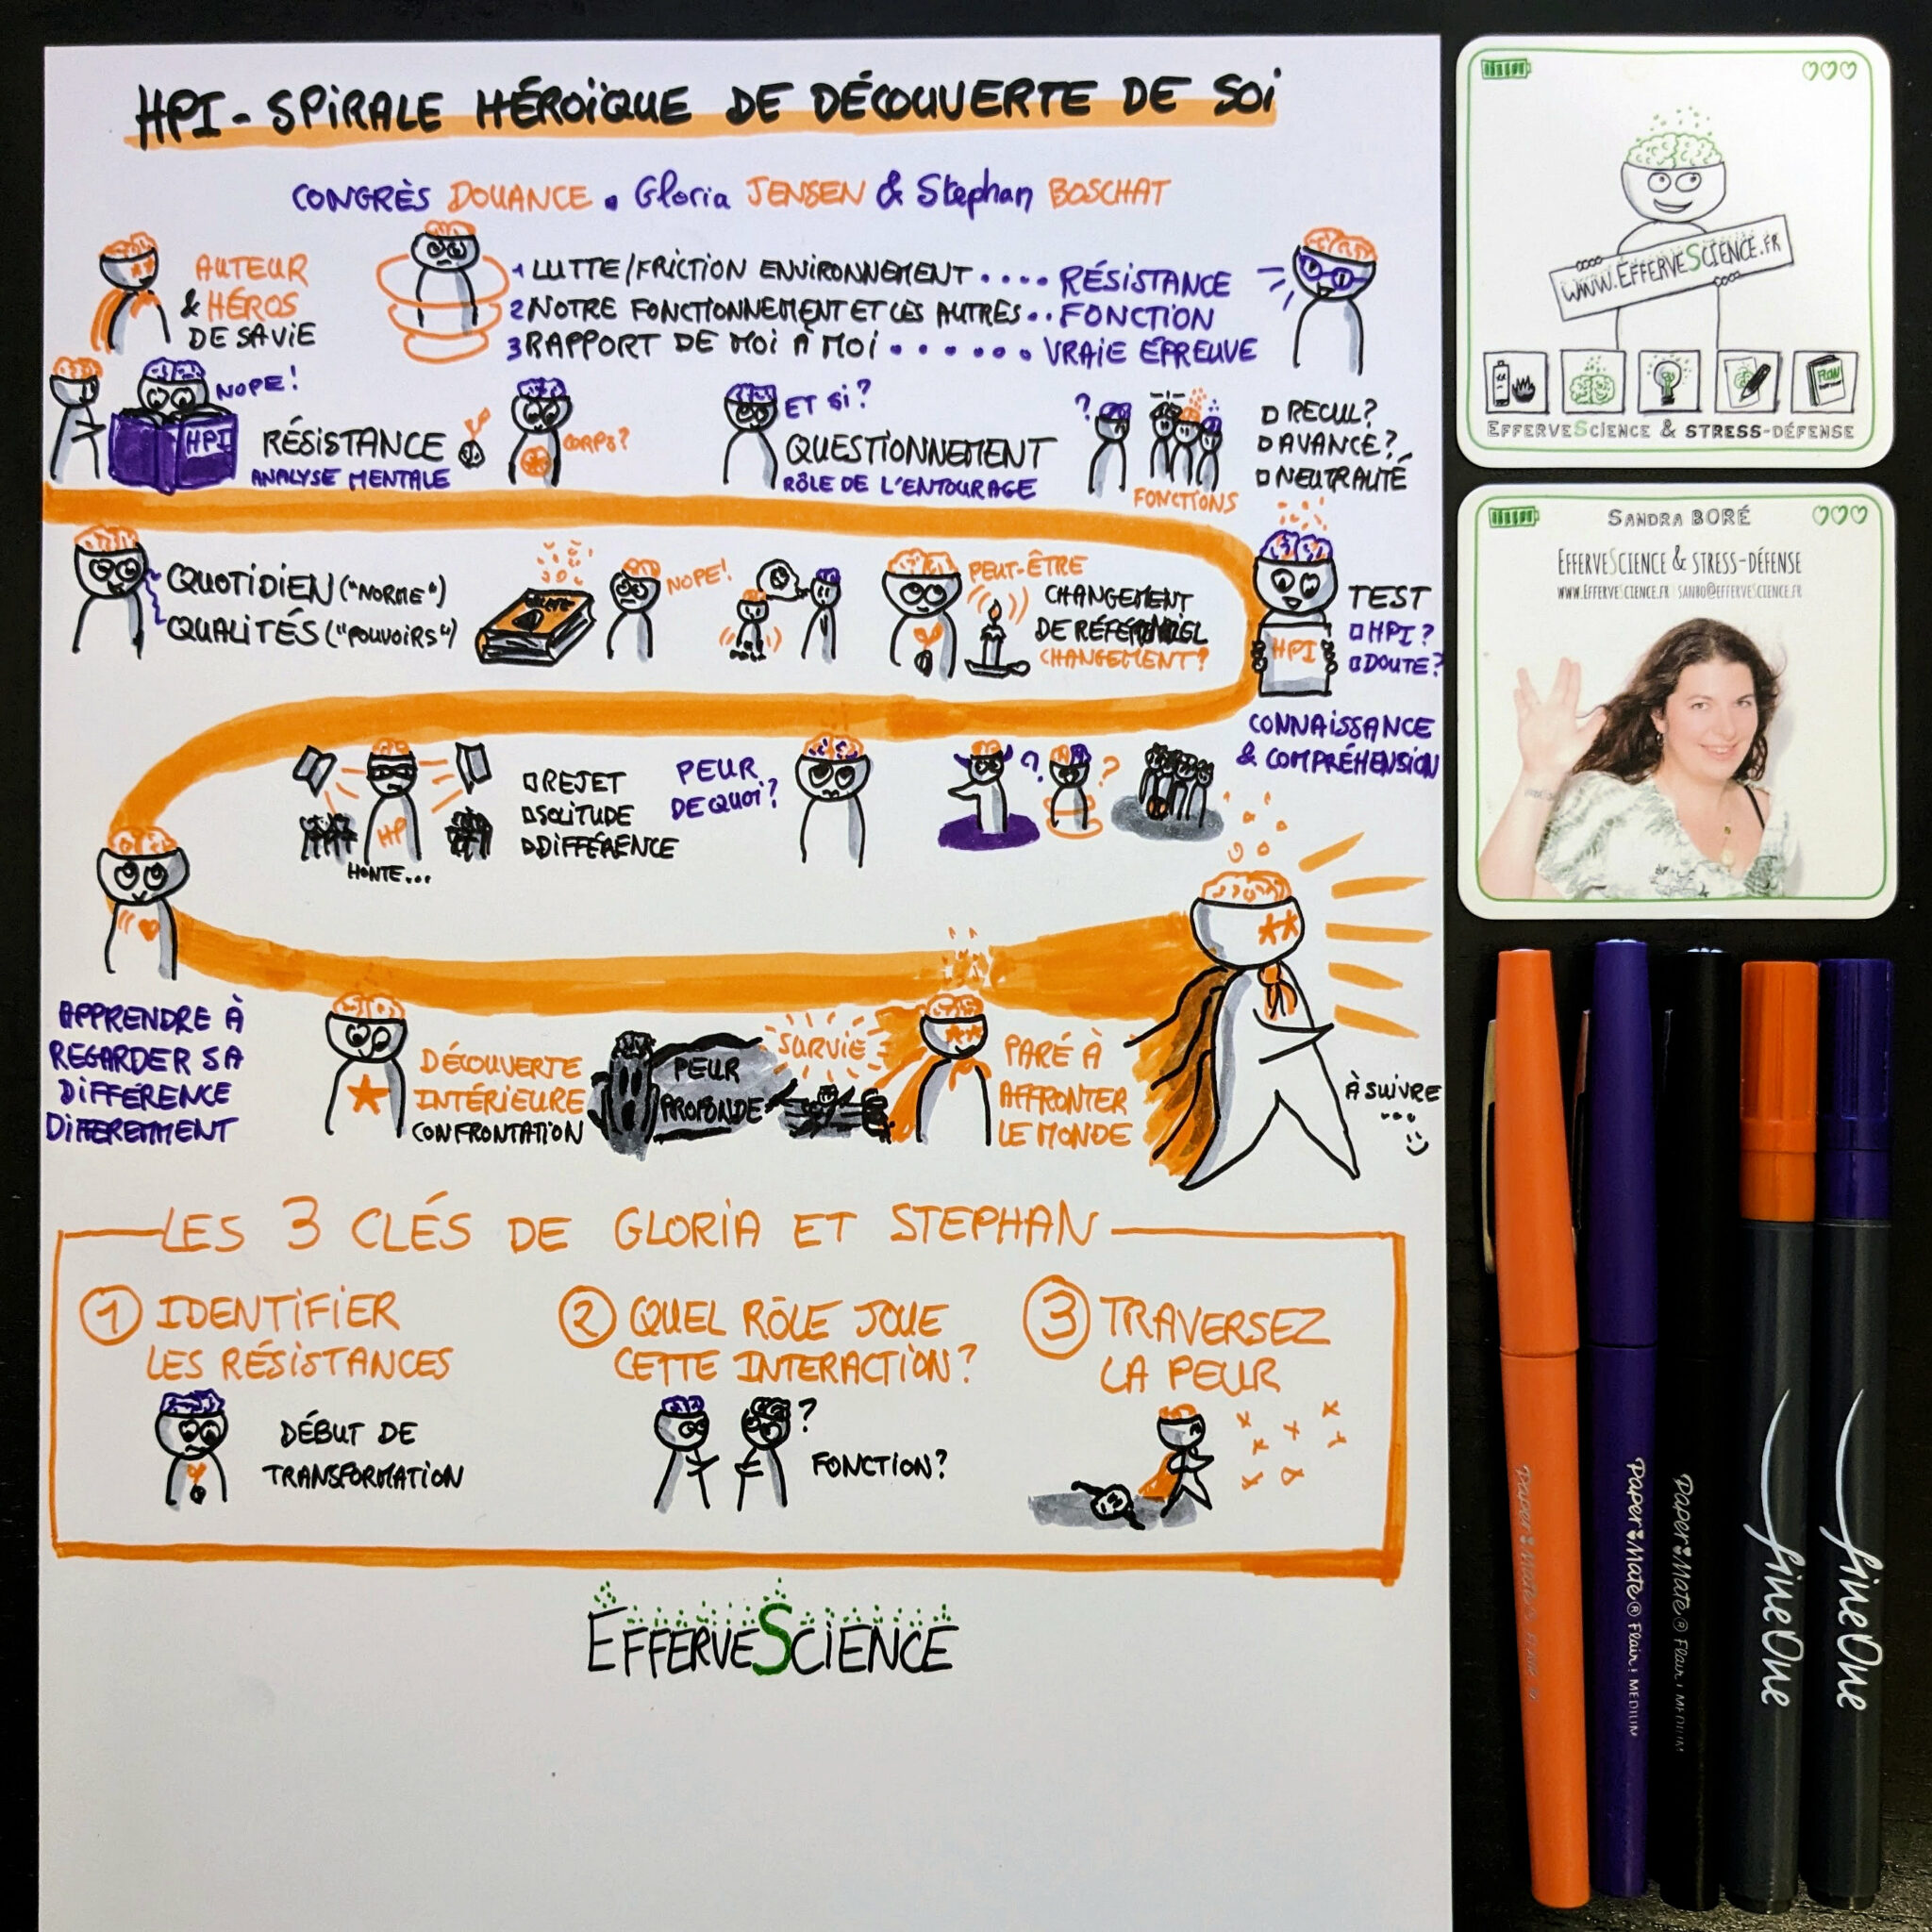 HPI - SPIRALE HÉROÏQUE DE DÉCOUVERTE DE SOI
CONGRÈS DOUANCE • Gloria JENSEN & Stephan BOSCHAT
AUTEUR
& HÉROS
DE SA VIE
1 LUTTE/FRICTION ENVIRONNEMENT .... RÉSISTANCE
2 NOTRE FONCTIONNEMENT ET LES AUTRES .. FONCTION
3 RAPPORT DE MOI À MOI ...... VRAIE ÉPREUVE
NOPE!
HPI
RÉSISTANCE
ANALYSE MENTALE
CORPS?
ET SI?
QUESTIONNEMENT
RÔLE DE L'ENTOURAGE
?
FONCTIONS
RECUL?
AVANCE?
NEUTRALITÉ
QUOTIDIEN ("NORME")
QUALITÉS ("POUVOIRS")
NOPE!
PEUT-ÊTRE
CHANGEMENT
DE RÉFÉRENTIEL
CHANGEMENT?
HPI
TEST
HPI?
DOUTE?
CONNAISSANCE
& COMPRÉHENSION
HP
HONTE...
REJET
SOLITUDE
DIFFÉRENCE
PEUR
DE QUOI?
?
?
APPRENDRE À
REGARDER SA
DIFFÉRENCE
DIFFEREMMENT
DÉCOUVERTE
INTÉRIEURE
CONFRONTATION
PEUR
PROFONDE
SURVIE
PARÉ À
AFFRONTER
LE MONDE
À SUIVRE
...
LES 3 CLÉS DE GLORIA ET STEPHAN
1 IDENTIFIER
LES RÉSISTANCES
DÉBUT DE
TRANSFORMATION
2 QUEL RÔLE JOUE
CETTE INTERACTION?
?
FONCTION?
3 TRAVERSEZ
LA PEUR
EFFERVESCIENCE
WWW.EFFERVESCIENCE.FR
EFFERVESCIENCE & STRESS-DÉFENSE
SANDRA BORÉ
EFFERVESCIENCE & STRESS-DÉFENSE
WWW.EFFERVESCIENCE.FR SANBO@EFFERVESCIENCE.FR
Paper Mate ® Flair
Paper Mate ® Flair MEDIUM
Paper Mate ® Flair MEDIUM
fineOne
fineOne